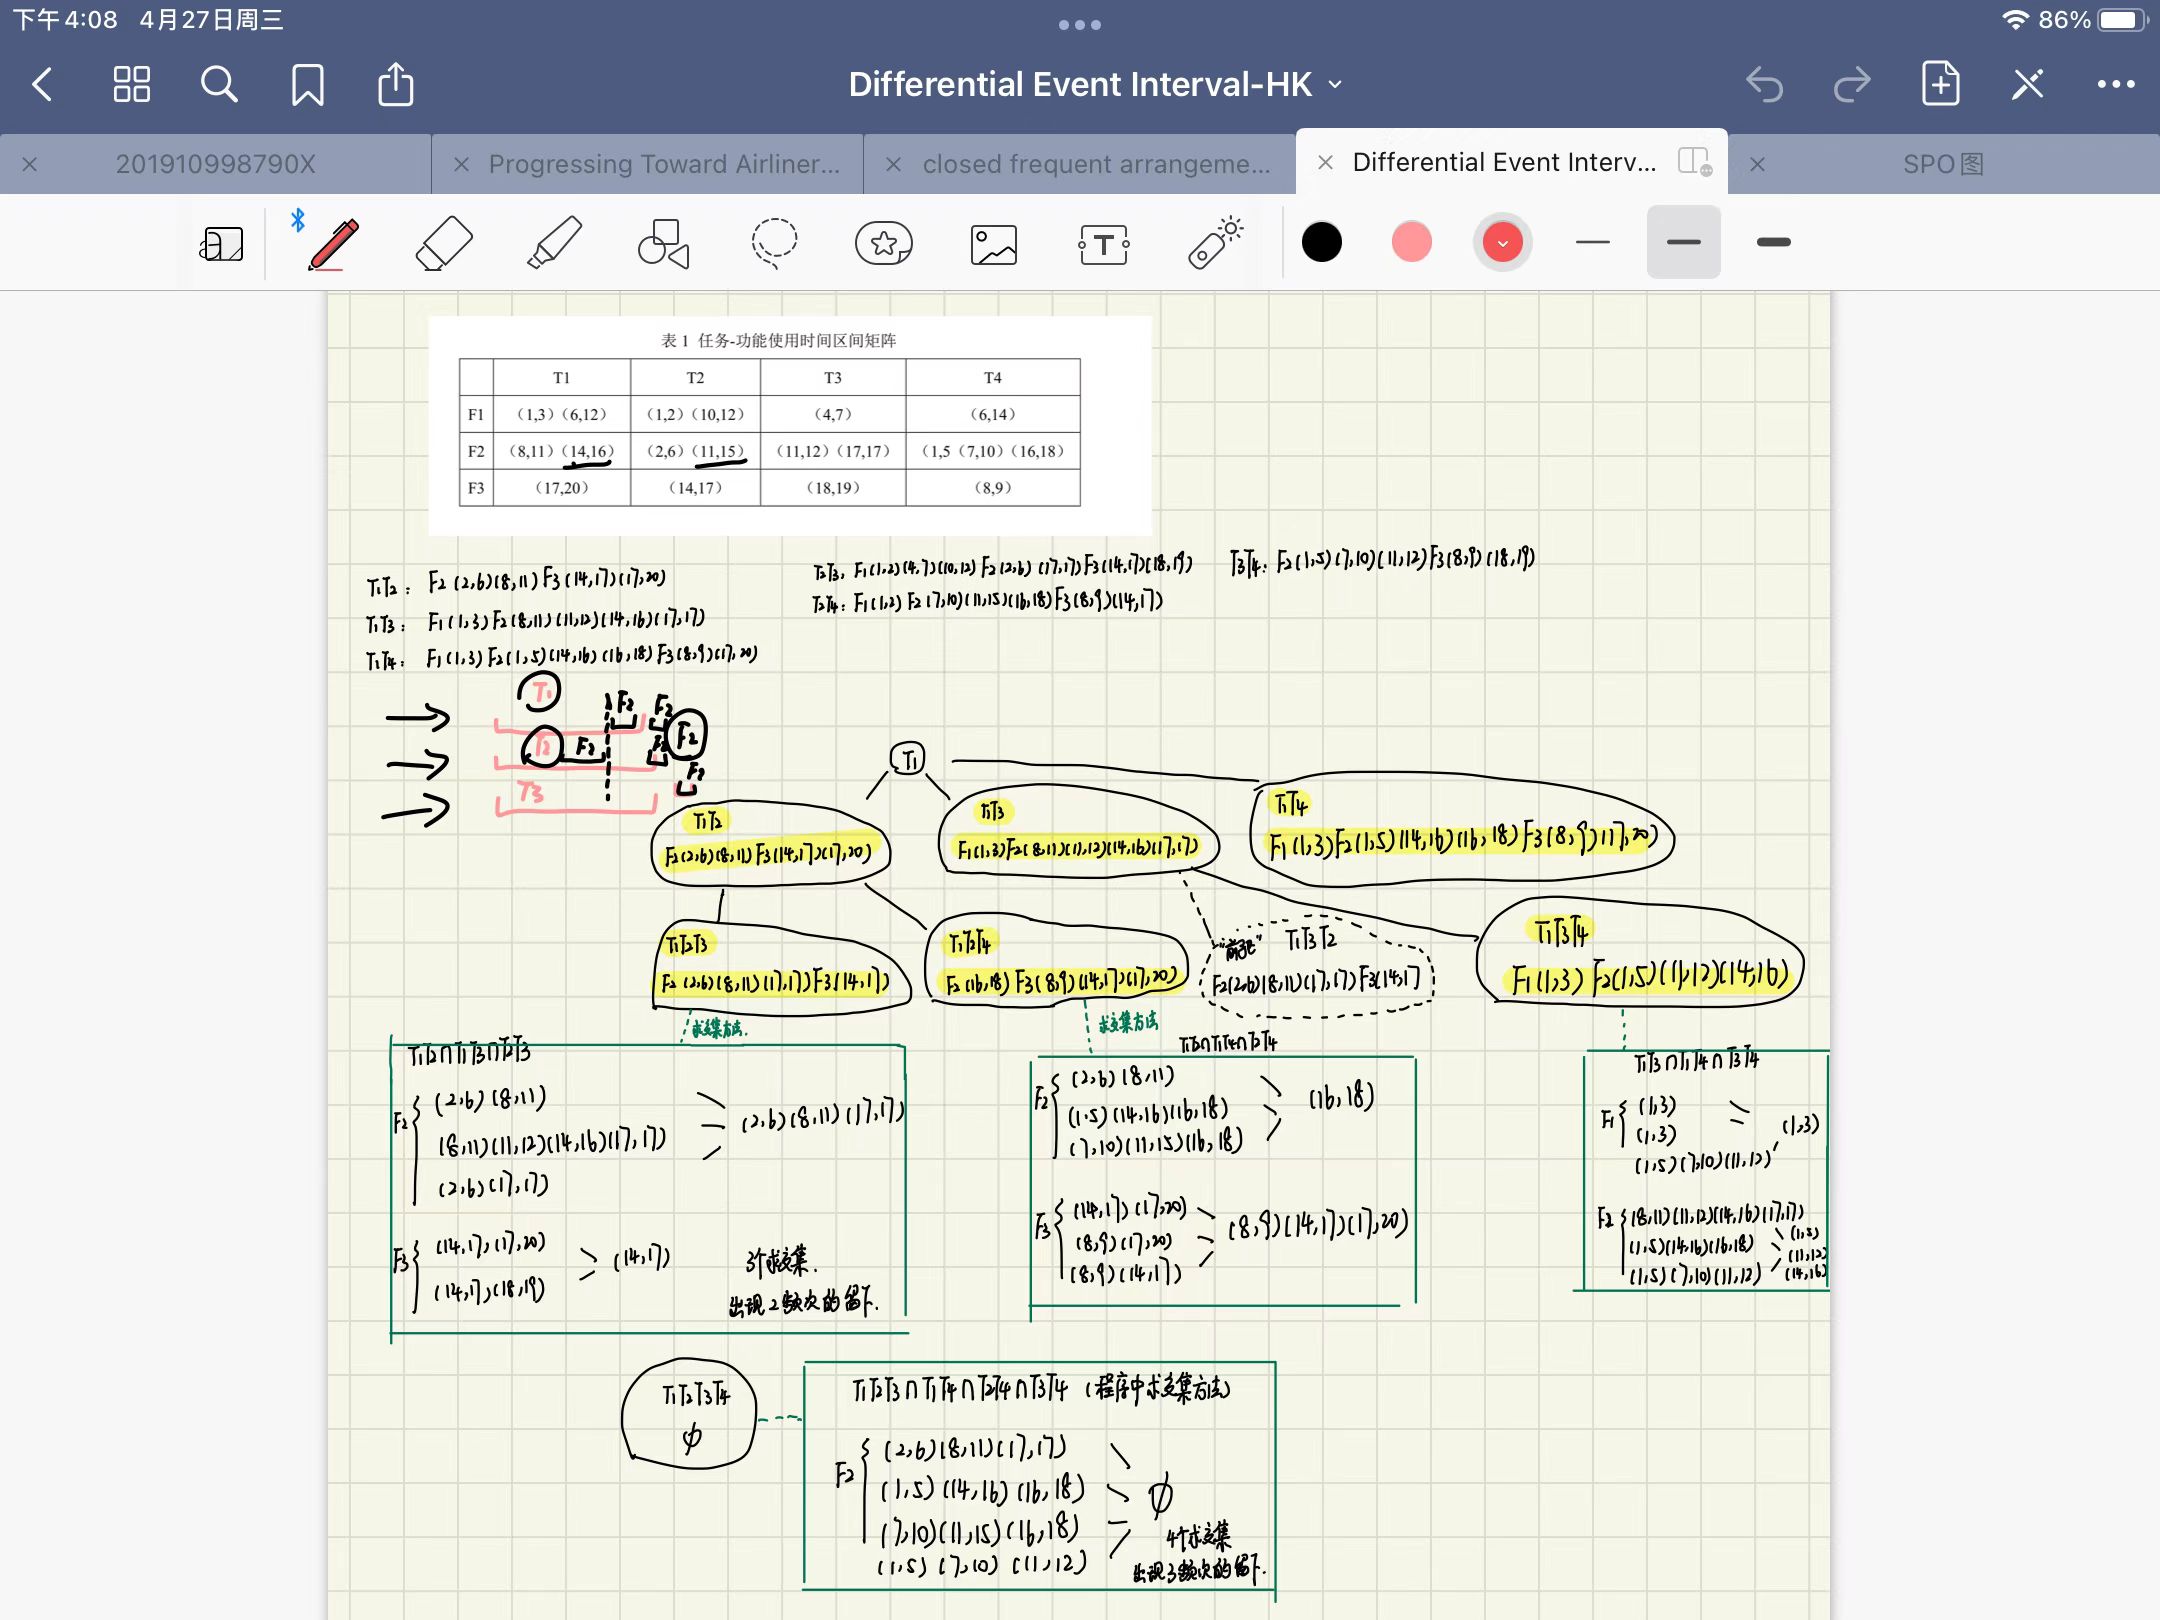 下午4:08 4月27日周三
86%
Differential Event Interval-HK
201910998790X
Progressing Toward Airliner...
closed frequent arrangeme...
Differential Event Interv...
SPO图
表 1 任务-功能使用时间区间矩阵
T1 T2 T3 T4
F1 (1,3)(6,12) (1,2)(10,12) (4,7) (6,14)
F2 (8,11)(14,16) (2,6)(11,15) (11,12)(17,17) (1,5(7,10)(16,18)
F3 (17,20) (14,17) (18,19) (8,9)
T1T2: F2(2,6)(8,11)F3(14,17)(17,20)
T1T3: F1(1,3)F2(8,11)(11,12)(14,16)(17,17)
T1T4: F1(1,3)F2(1,5)(14,16)(16,18)F3(8,9)(17,20)
T2T3: F1(1,2)(4,7)(10,12)F2(2,6)(17,17)F3(14,17)(18,19)
T2T4: F1(1,2)F2(7,10)(11,15)(16,18)F3(8,9)(14,17)
T3T4: F2(1,5)(7,10)(11,12)F3(8,9)(18,19)
T1
F2 F2
T2 F2 F2
T3
T1
T1T2
F2(2,6)(8,11)F3(14,17)(17,20)
T1T3
F1(1,3)F2(8,11)(11,12)(14,16)(17,17)
T1T4
F1(1,3)F2(1,5)(14,16)(16,18)F3(8,9)17,20)
T1T2T3
F2(2,6)(8,11)(17,17)F3(14,17)
T1T2T4
F2(16,18)F3(8,9)(14,17)(17,20)
T1T3T2
F2(2,6)(8,11)(17,17)F3(14,17
T1T3T4
F1(1,3)F2(1,5)(11,12)(14,16)
求交集方法.
T1T2∩T1T3∩T2T3
F2
(2,6)(8,11)
(8,11)(11,12)(14,16)(17,17)
(2,6)(17,17)
(2,6)(8,11)(17,17)
F3
(14,17)(17,20)
(14,17)(18,19)
(14,17)
3个求交集.
出现2频次的留下.
求交集方法
T1T2∩T1T4∩T2T4
F2
(2,6)(8,11)
(1,5)(14,16)(16,18)
(7,10)(11,15)(16,18)
(16,18)
F3
(14,17)(17,20)
(8,9)(17,20)
(8,9)(14,17)
(8,9)(14,17)(17,20)
T1T3∩T1T4∩T3T4
F1
(1,3)
(1,3)
(1,5)(7,10)(11,12)
(1,3)
F2
(8,11)(11,12)(14,16)(17,17)
(1,5)(14,16)(16,18)
(1,5)(7,10)(11,12)
(1,5)
(11,12)
(14,16)
T1T2T3T4
∅
T1T2T3∩T1T4∩T2T4∩T3T4 (程序中求交集方法)
F2
(2,6)(8,11)(17,17)
(1,5)(14,16)(16,18)
(7,10)(11,15)(16,18)
(1,5)(7,10)(11,12)
∅
4个求交集
出现3频次的留下.